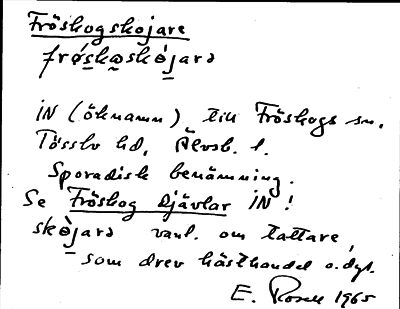 Fröskogskojare
frǿskaskòjarə
IN (öknamn) till Fröskogs sn.
Tösslo hd, Älvsb. l.
Sporadisk benämning.
Se Fröskog Djävlar IN!
skòjarə vanl. om tattare,
som drev hästhandel o.dyl.
E. Rosell 1965